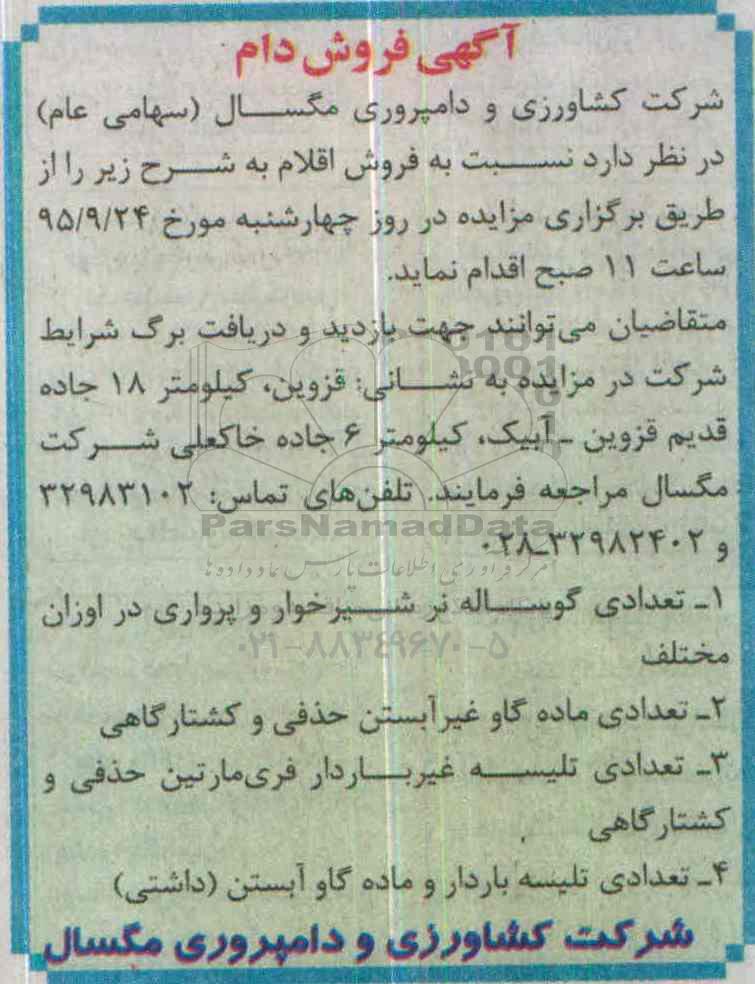 آگهی فروش دام
شرکت کشاورزی و دامپروری مگسال (سهامی عام)
در نظر دارد نسبت به فروش اقلام به شرح زیر را از
طریق برگزاری مزایده در روز چهارشنبه مورخ ۹۵/۹/۲۴
ساعت ۱۱ صبح اقدام نماید.
متقاضیان می‌توانند جهت بازدید و دریافت برگ شرایط
شرکت در مزایده به نشانی: قزوین، کیلومتر ۱۸ جاده
قدیم قزوین ـ آبیک، کیلومتر ۶ جاده خاکعلی شرکت
مگسال مراجعه فرمایند. تلفن‌های تماس: ۳۲۹۸۳۱۰۲
ParsNamadData
و ۳۲۹۸۲۴۰۲ـ۰۲۸
مرکز فرآوری اطلاعات پارس نماد داده ها
۱ـ تعدادی گوساله نر شیرخوار و پرواری در اوزان
۰۲۱-۸۸۳۴۹۶۷۰-۵
مختلف
۲ـ تعدادی ماده گاو غیرآبستن حذفی و کشتارگاهی
۳ـ تعدادی تلیسه غیرباردار فری‌مارتین حذفی و
کشتارگاهی
۴ـ تعدادی تلیسه باردار و ماده گاو آبستن (داشتی)
شرکت کشاورزی و دامپروری مگسال